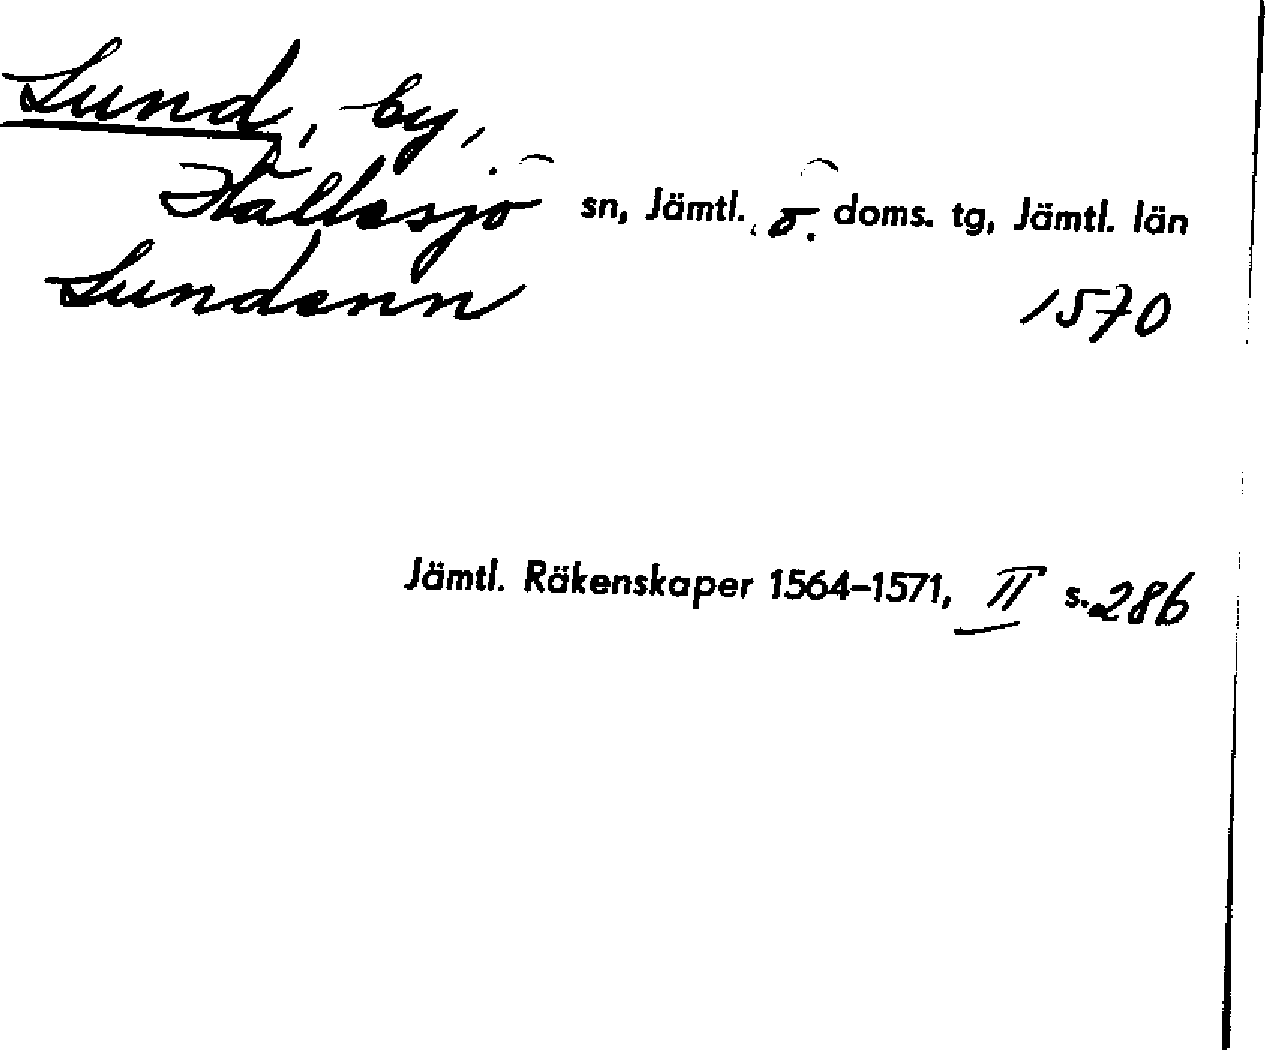 Lund, by,
Hällesjö sn, Jämtl. ö. doms. tg, Jämtl. län
Lundenn 1570
Jämtl. Räkenskaper 1564–1571, II s. 286